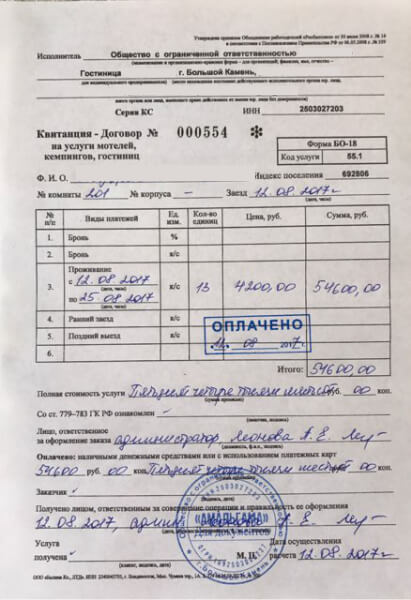 Утверждено приказом Объединения работодателей «РосБытСоюз» от 30 июня 2008 г. № 14
в соответствии с Постановлением Правительства РФ от 06.05.2008 г. № 359
Исполнитель Общество с ограниченной ответственностью
(наименование и организационно-правовая форма – для организаций, фамилия, имя, отчество –
Гостиница г. Большой Камень,
Серия КС ИНН 2503027203
Квитанция - Договор № 000554
на услуги мотелей,
кемпингов, гостиниц
Форма БО-18
Код услуги 55.1
Ф. И. О. Индекс поселения 692806
№ комнаты 201 № корпуса – Заезд 12.08.2017г
(дата, часы)
№ п/с Виды платежей Ед. изм. Кол-во единиц Цена, руб. Сумма, руб.
1. Бронь %
2. Бронь к/с
3. Проживание с 12.08.2017 (дата, часы) по 25.08.2017 (дата, часы) к/с 13 4200,00 54600,00
4. Ранний заезд к/с
5. Поздний выезд к/с
6.
ОПЛАЧЕНО
12. 08 2017 г.
Итого: 54600,00
Полная стоимость услуги Пятьдесят четыре тысячи шестьсот руб. 00 коп.
(сумма прописью)
Со ст. 779–783 ГК РФ ознакомлен
Лицо, ответственное
за оформление заказа администратор Леонова А. Е.
Оплачено: наличными денежными средствами или с использованием платежных карт
54600 руб. 00 коп. Пятьдесят четыре тысячи шестьсот 00 коп.
Заказчик
(подпись, дата)
Получено лицом, ответственным за совершение операции и правильность ее оформления
12.08.2017, админ А. Е.
Услуга
получена
М. П.
Дата осуществления
расчета 12.08.2017г
Для документов